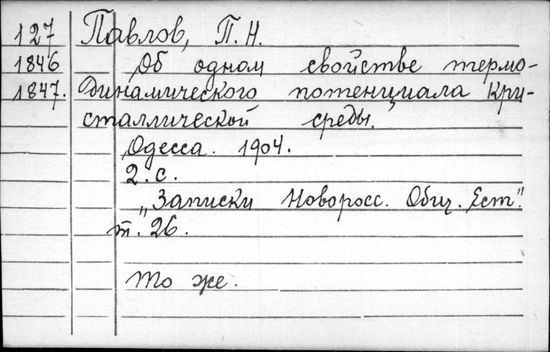 127 Павлов, П.Н.
1846 Об одном свойстве термо-
1847. динамического потенциала кри-
сталлической среды.
Одесса. 1904.
2. с.
„Записки Новоросс. Общ. Ест."
т. 26.
То же.